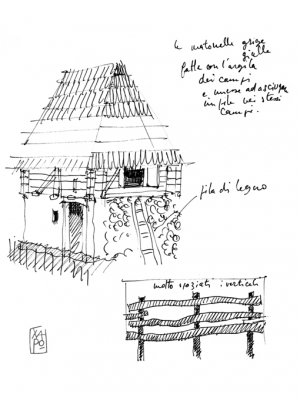 le mattonelle grige
gialle
fatte con l'argilla
dei campi
e messe ad asciugare
in pile nei stessi
campi.
pila di legno
molto spaziati i verticali